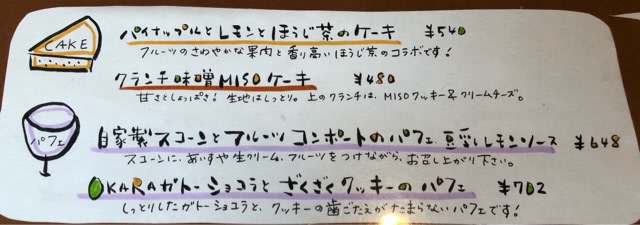 CAKE
パイナップルとレモンとほうじ茶のケーキ ¥540
フルーツのさわやかな果肉と香り高いほうじ茶のコラボです!
クランチ味噌MISOケーキ ¥480
甘さとしょっぱさ! 生地はしっとり。上のクランチは、MISOクッキー&クリームチーズ。
パフェ
自家製スコーンとフルーツコンポートのパフェ レモンソース ¥648
スコーンに、あいすや生クリーム、フルーツをつけながら、お召し上がり下さい。
OKARAガトーショコラとざくざくクッキーのパフェ ¥702
しっとりしたガトーショコラと、クッキーの歯ごたえがたまらないパフェです!